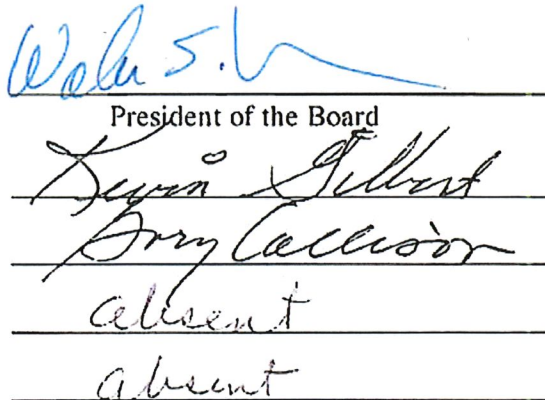 S.
President of the Board
Kevin Gilbert
Gory Collison
absent
absent